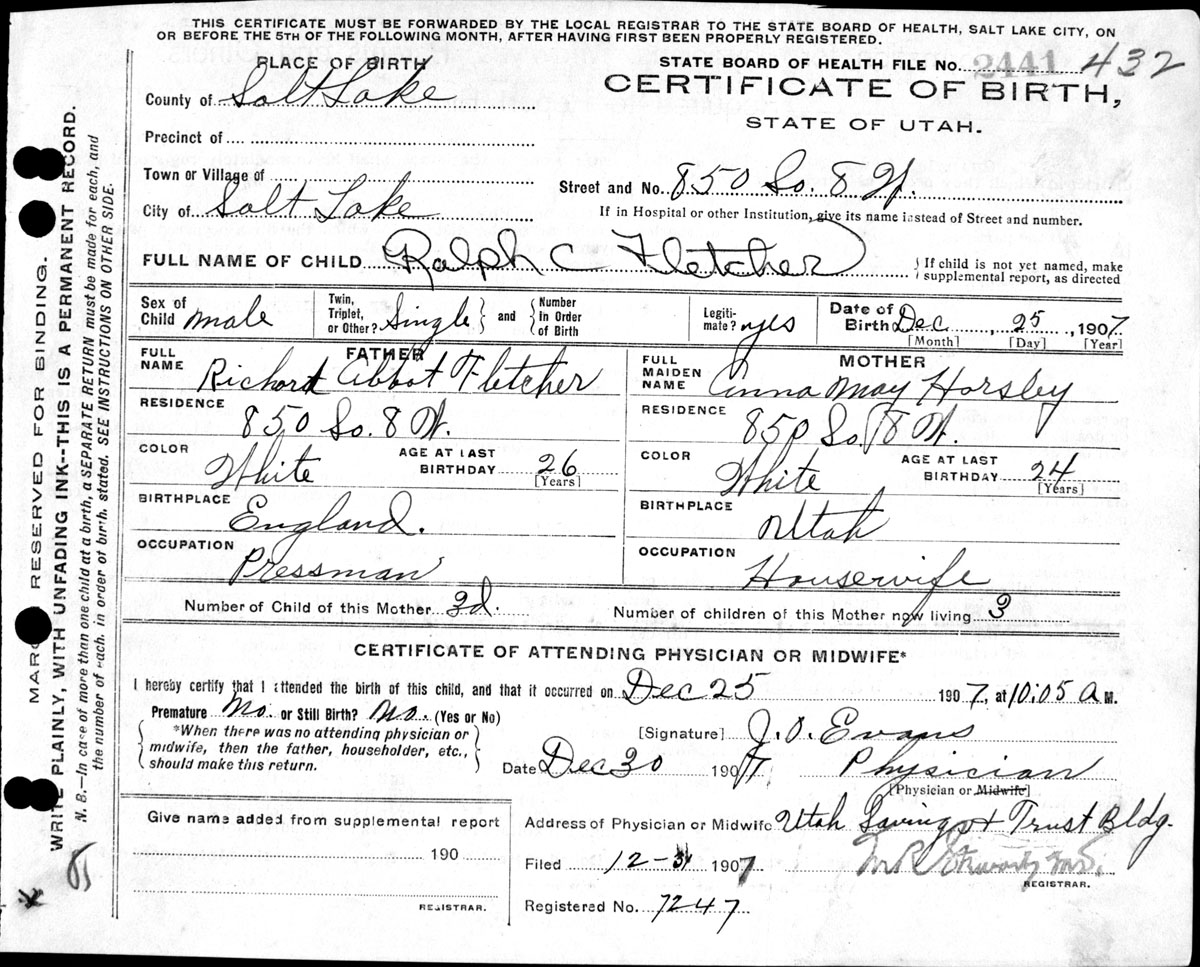 THIS CERTIFICATE MUST BE FORWARDED BY THE LOCAL REGISTRAR TO THE STATE BOARD OF HEALTH, SALT LAKE CITY, ON
OR BEFORE THE 5TH OF THE FOLLOWING MONTH, AFTER HAVING FIRST BEEN PROPERLY REGISTERED.
PLACE OF BIRTH
STATE BOARD OF HEALTH FILE No. 2441 432
County of Salt Lake
CERTIFICATE OF BIRTH,
STATE OF UTAH.
Precinct of
Town or Village of
Street and No. 850 So. 8 W.
City of Salt Lake
If in Hospital or other Institution, give its name instead of Street and number.
FULL NAME OF CHILD Ralph C Fletcher
If child is not yet named, make
supplemental report, as directed
Sex of
Child male
Twin,
Triplet,
or Other? Single
and
Number
in Order
of Birth
Legiti-
mate? yes
Date of
Birth Dec, 25, 1907
[Month] [Day] [Year]
FATHER
FULL
NAME Richard Abbot Fletcher
MOTHER
FULL
MAIDEN
NAME Anna May Horsley
RESIDENCE
850 So. 8 W.
RESIDENCE
850 So. 8 W.
COLOR
White
AGE AT LAST
BIRTHDAY 26
[Years]
COLOR
White
AGE AT LAST
BIRTHDAY 24
[Years]
BIRTHPLACE
England.
BIRTHPLACE
Utah
OCCUPATION
Pressman
OCCUPATION
Housewife
Number of Child of this Mother 3d.
Number of children of this Mother now living 3
CERTIFICATE OF ATTENDING PHYSICIAN OR MIDWIFE*
I hereby certify that I attended the birth of this child, and that it occurred on Dec 25 1907, at 10:05 a M.
Premature No. or Still Birth? No. (Yes or No)
*When there was no attending physician or
midwife, then the father, householder, etc.,
should make this return.
[Signature] J. O. Evans
Date Dec 30 1907 Physician
[Physician or Midwife]
Give name added from supplemental report
190
REGISTRAR.
Address of Physician or Midwife Utah Savings & Trust Bldg.
Filed 12-31 1907
REGISTRAR.
Registered No. 7247
MARGIN RESERVED FOR BINDING.
WRITE PLAINLY, WITH UNFADING INK--THIS IS A PERMANENT RECORD.
N. B.—In case of more than one child at a birth, a SEPARATE RETURN must be made for each, and
the number of each, in order of birth, stated. SEE INSTRUCTIONS ON OTHER SIDE.